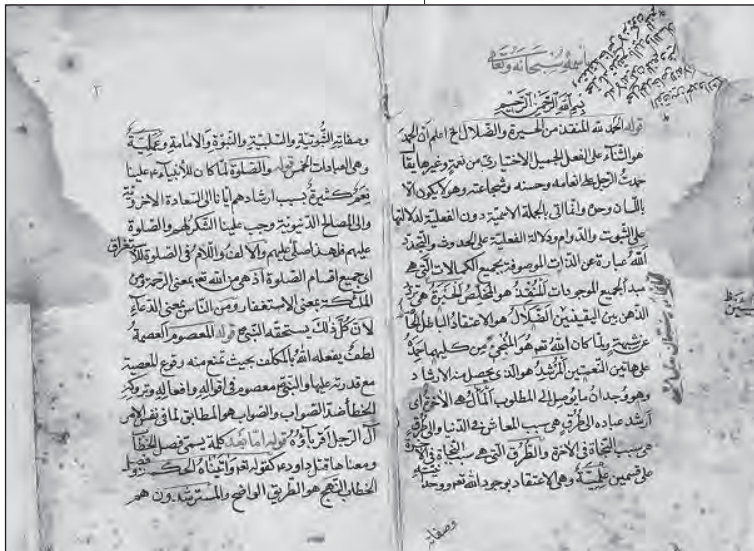 بسم الله الرحمن الرحيم
قوله الحمد لله المنقذ من الحيرة والضلال الخ اعلم ان الحمد
هو الثناء على الفعل الجميل الاختياري من نعمة وغيرها يقا
حمدت الرجل على انعامه وحسنه وشجاعته وهو لا يكون الا
باللسان وحده اتى بالجملة الاسمية دون الفعلية لدلالتها
على الثبوت والدوام ودلالة الفعلية على الحدوث والتجدد
الله عبارة عن الذات الموصوفة بجميع الكمالات التي هي
مبدأ لجميع الموجودات المنقذ هو المخلص الحيرة هي
الذهن بين اليقينين الضلال هو الاعتقاد الباطل
عن شبهة ولما كان الله تعم هو المنجي من كليهما حمده
على هاتين النعمتين المرشد هو الذي يحصل منه الارشاد
وهو وجدان ما يوصل الى المطلوب المآل هي الآخرة اى
ارشد عباده الى طرق هي سبب المعاش في الدنيا والى طرق
هي سبب النجاة في الآخرة والطرق التي هي سبب النجاة في الآخرة
على قسمين علمية وهي الاعتقاد بوجود الله تعم ووحدانيته
وصفاته
٢
وصفاته الثبوتية والسلبية والنبوة والامامة وعملية
وهي العبادات الخمس قوله والصلوة لما كان للأنبياء علينا
نعم كثيرة بسبب ارشادهم ايانا الى السعادة الاخروية
والى المصالح الدنيوية وجب علينا الشكر لهم والصلوة
عليهم فلهذا صلى عليهم والالف واللام في الصلوة للاستغراق
اى جميع اقسام الصلوة اذ هي من الله تعم بمعنى الرحمة ومن
الملئكة بمعنى الاستغفار ومن الناس بمعنى الدعاء
لان كل ذلك يستحقه النبي قوله للمعصوم العصمة
لطف يفعله الله بالمكلف بحيث تمنع منه وقوع المعصية
مع قدرته عليها والنبي معصوم في اقواله وافعاله وتروكه
الخطأ ضد الصواب والصواب هو المطابق لما في نفس الامر
آل الرجل اقرباؤه قوله اما بعد كلمة يسمى فصل الخطاب
ومعناها قبل داود كقوله تعم وآتيناه الحكمة وفصل
الخطاب النهج هو الطريق الواضح والمسترشدون هم